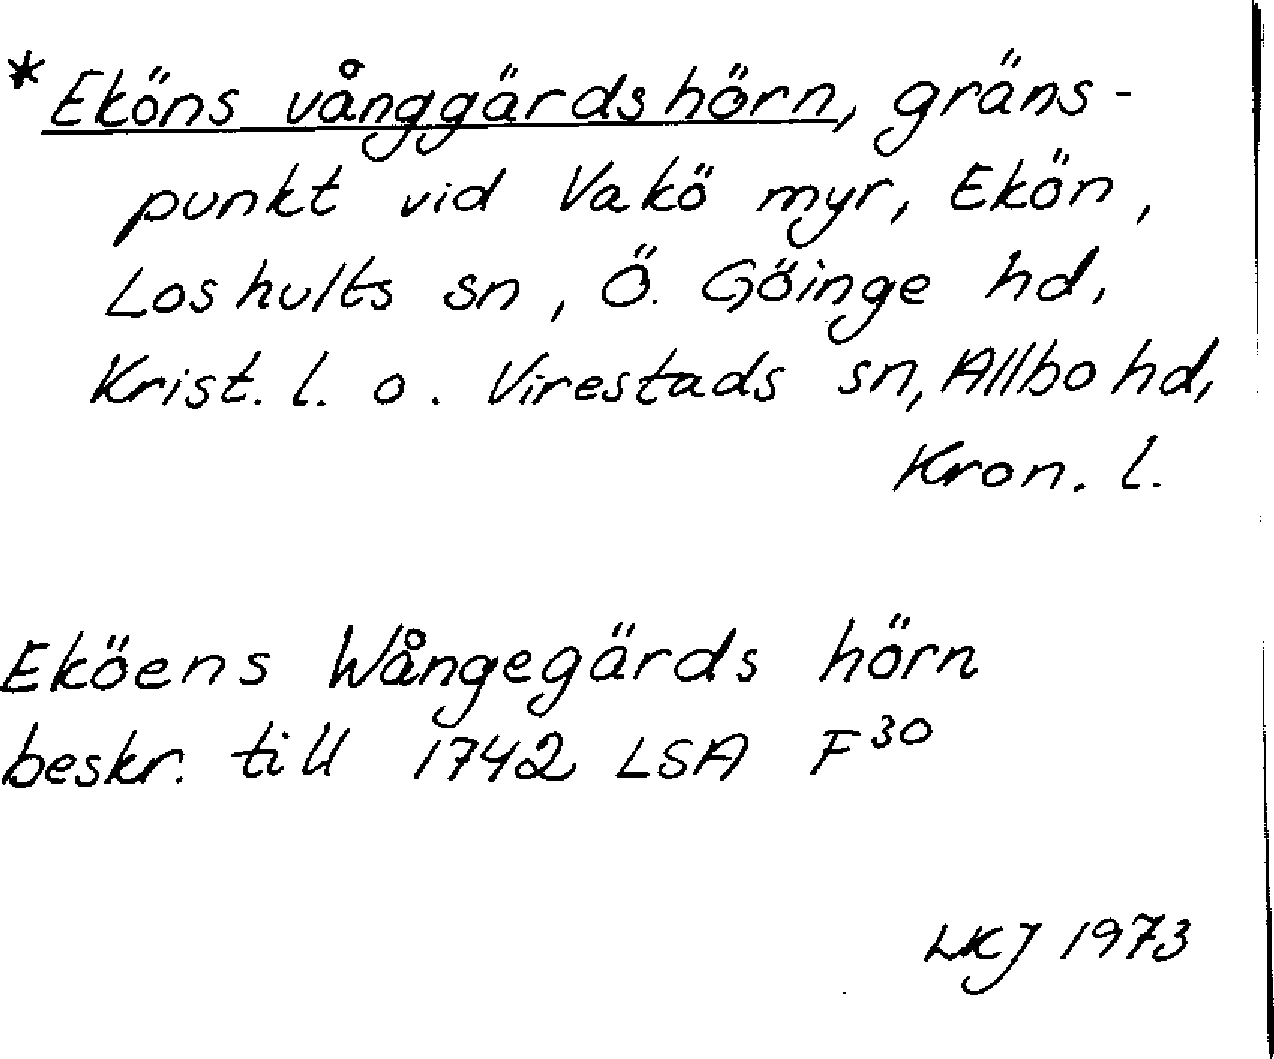 *Eköns vånggärdshörn, gräns-
punkt vid Vakö myr, Ekön,
Loshults sn, Ö. Göinge hd,
Krist. l. o. Virestads sn, Allbo hd,
Kron. l.
Eköens Wångegärds hörn
beskr. till 1742 LSA F³⁰
LKJ 1973